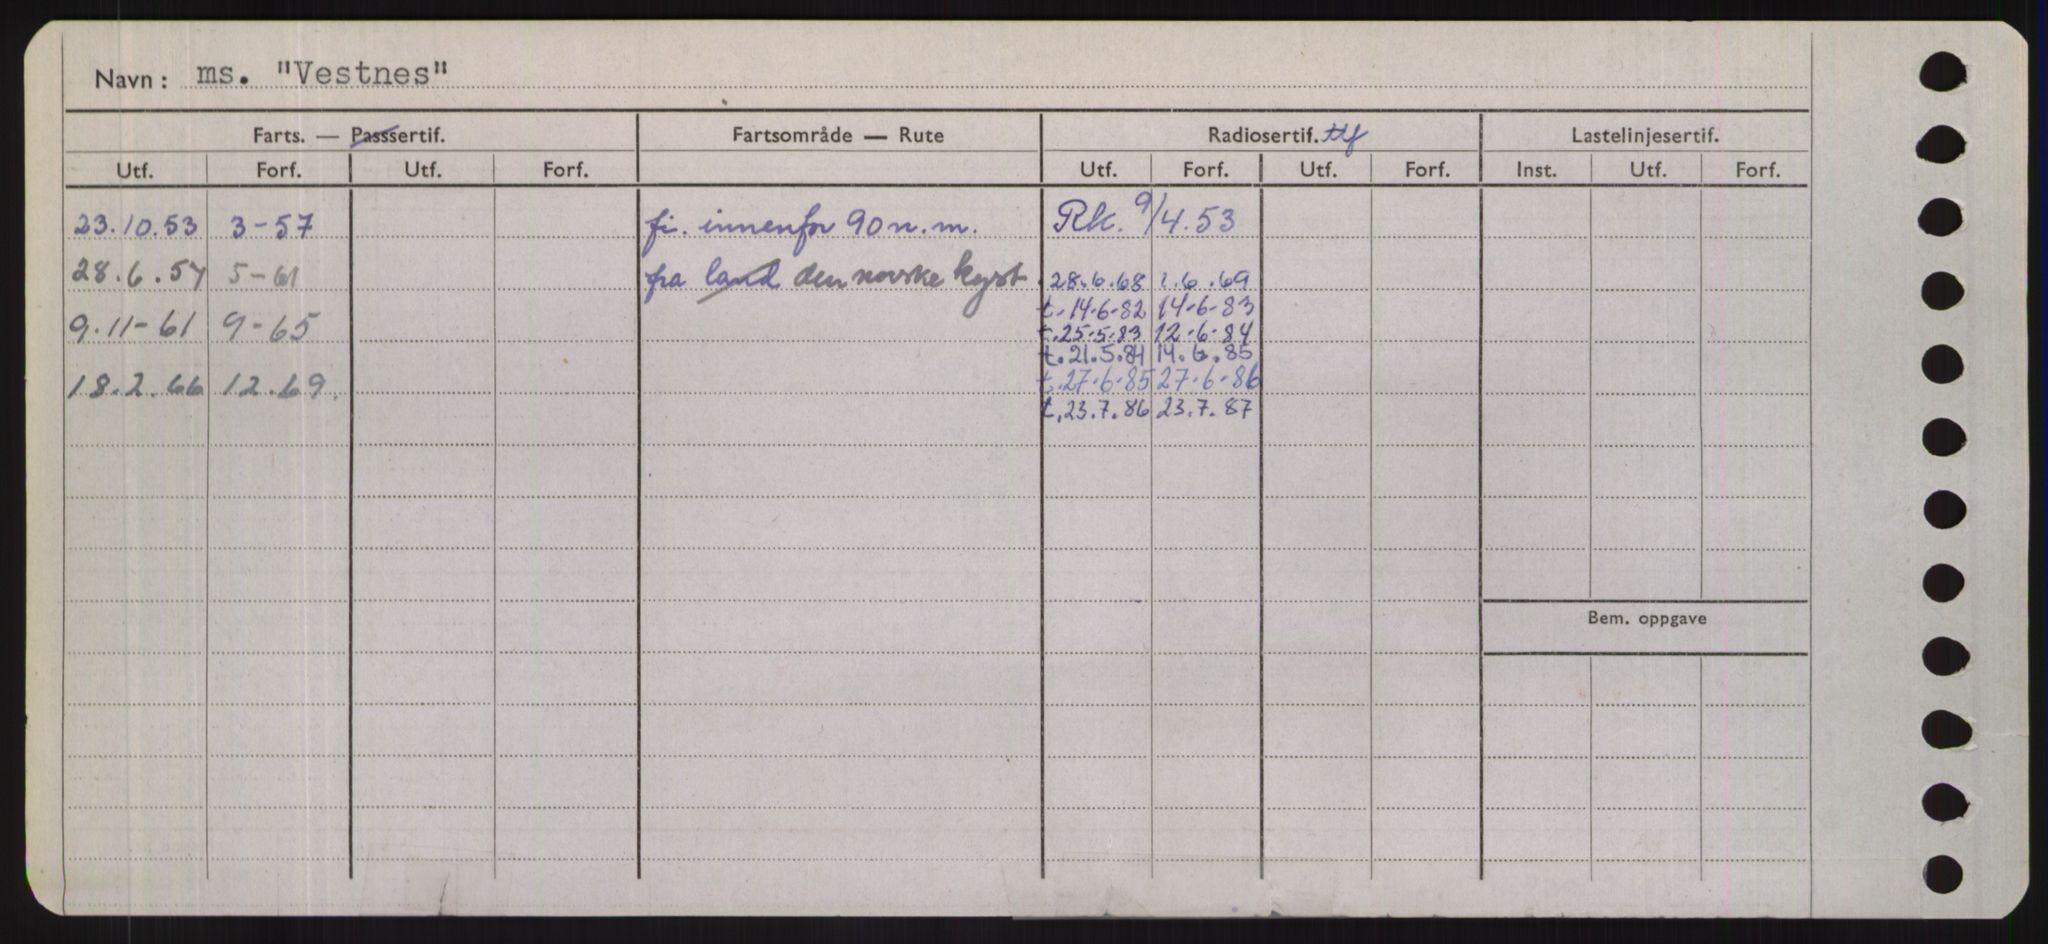 Navn: ms. "Vestnes"
Farts. — Passsertif. Fartsområde — Rute Radiosertif. ttf Lastelinjesertif.
Utf. Forf. Utf. Forf. Utf. Forf. Utf. Forf. Inst. Utf. Forf.
23.10.53 3-57 fi. innenfor 90 n.m. Rk. 9/4.53
28.6.57 5-61 fra land den norske kyst. 28.6.68 1.6.69
t.14-6-82 14-6-83
9.11-61 9-65 t.25-5-83 12-6-84
t.21.5.84 14.6.85
18.2.66 12.69. t.27-6-85 27-6-86
t.23.7.86 23.7.87
Bem. oppgave